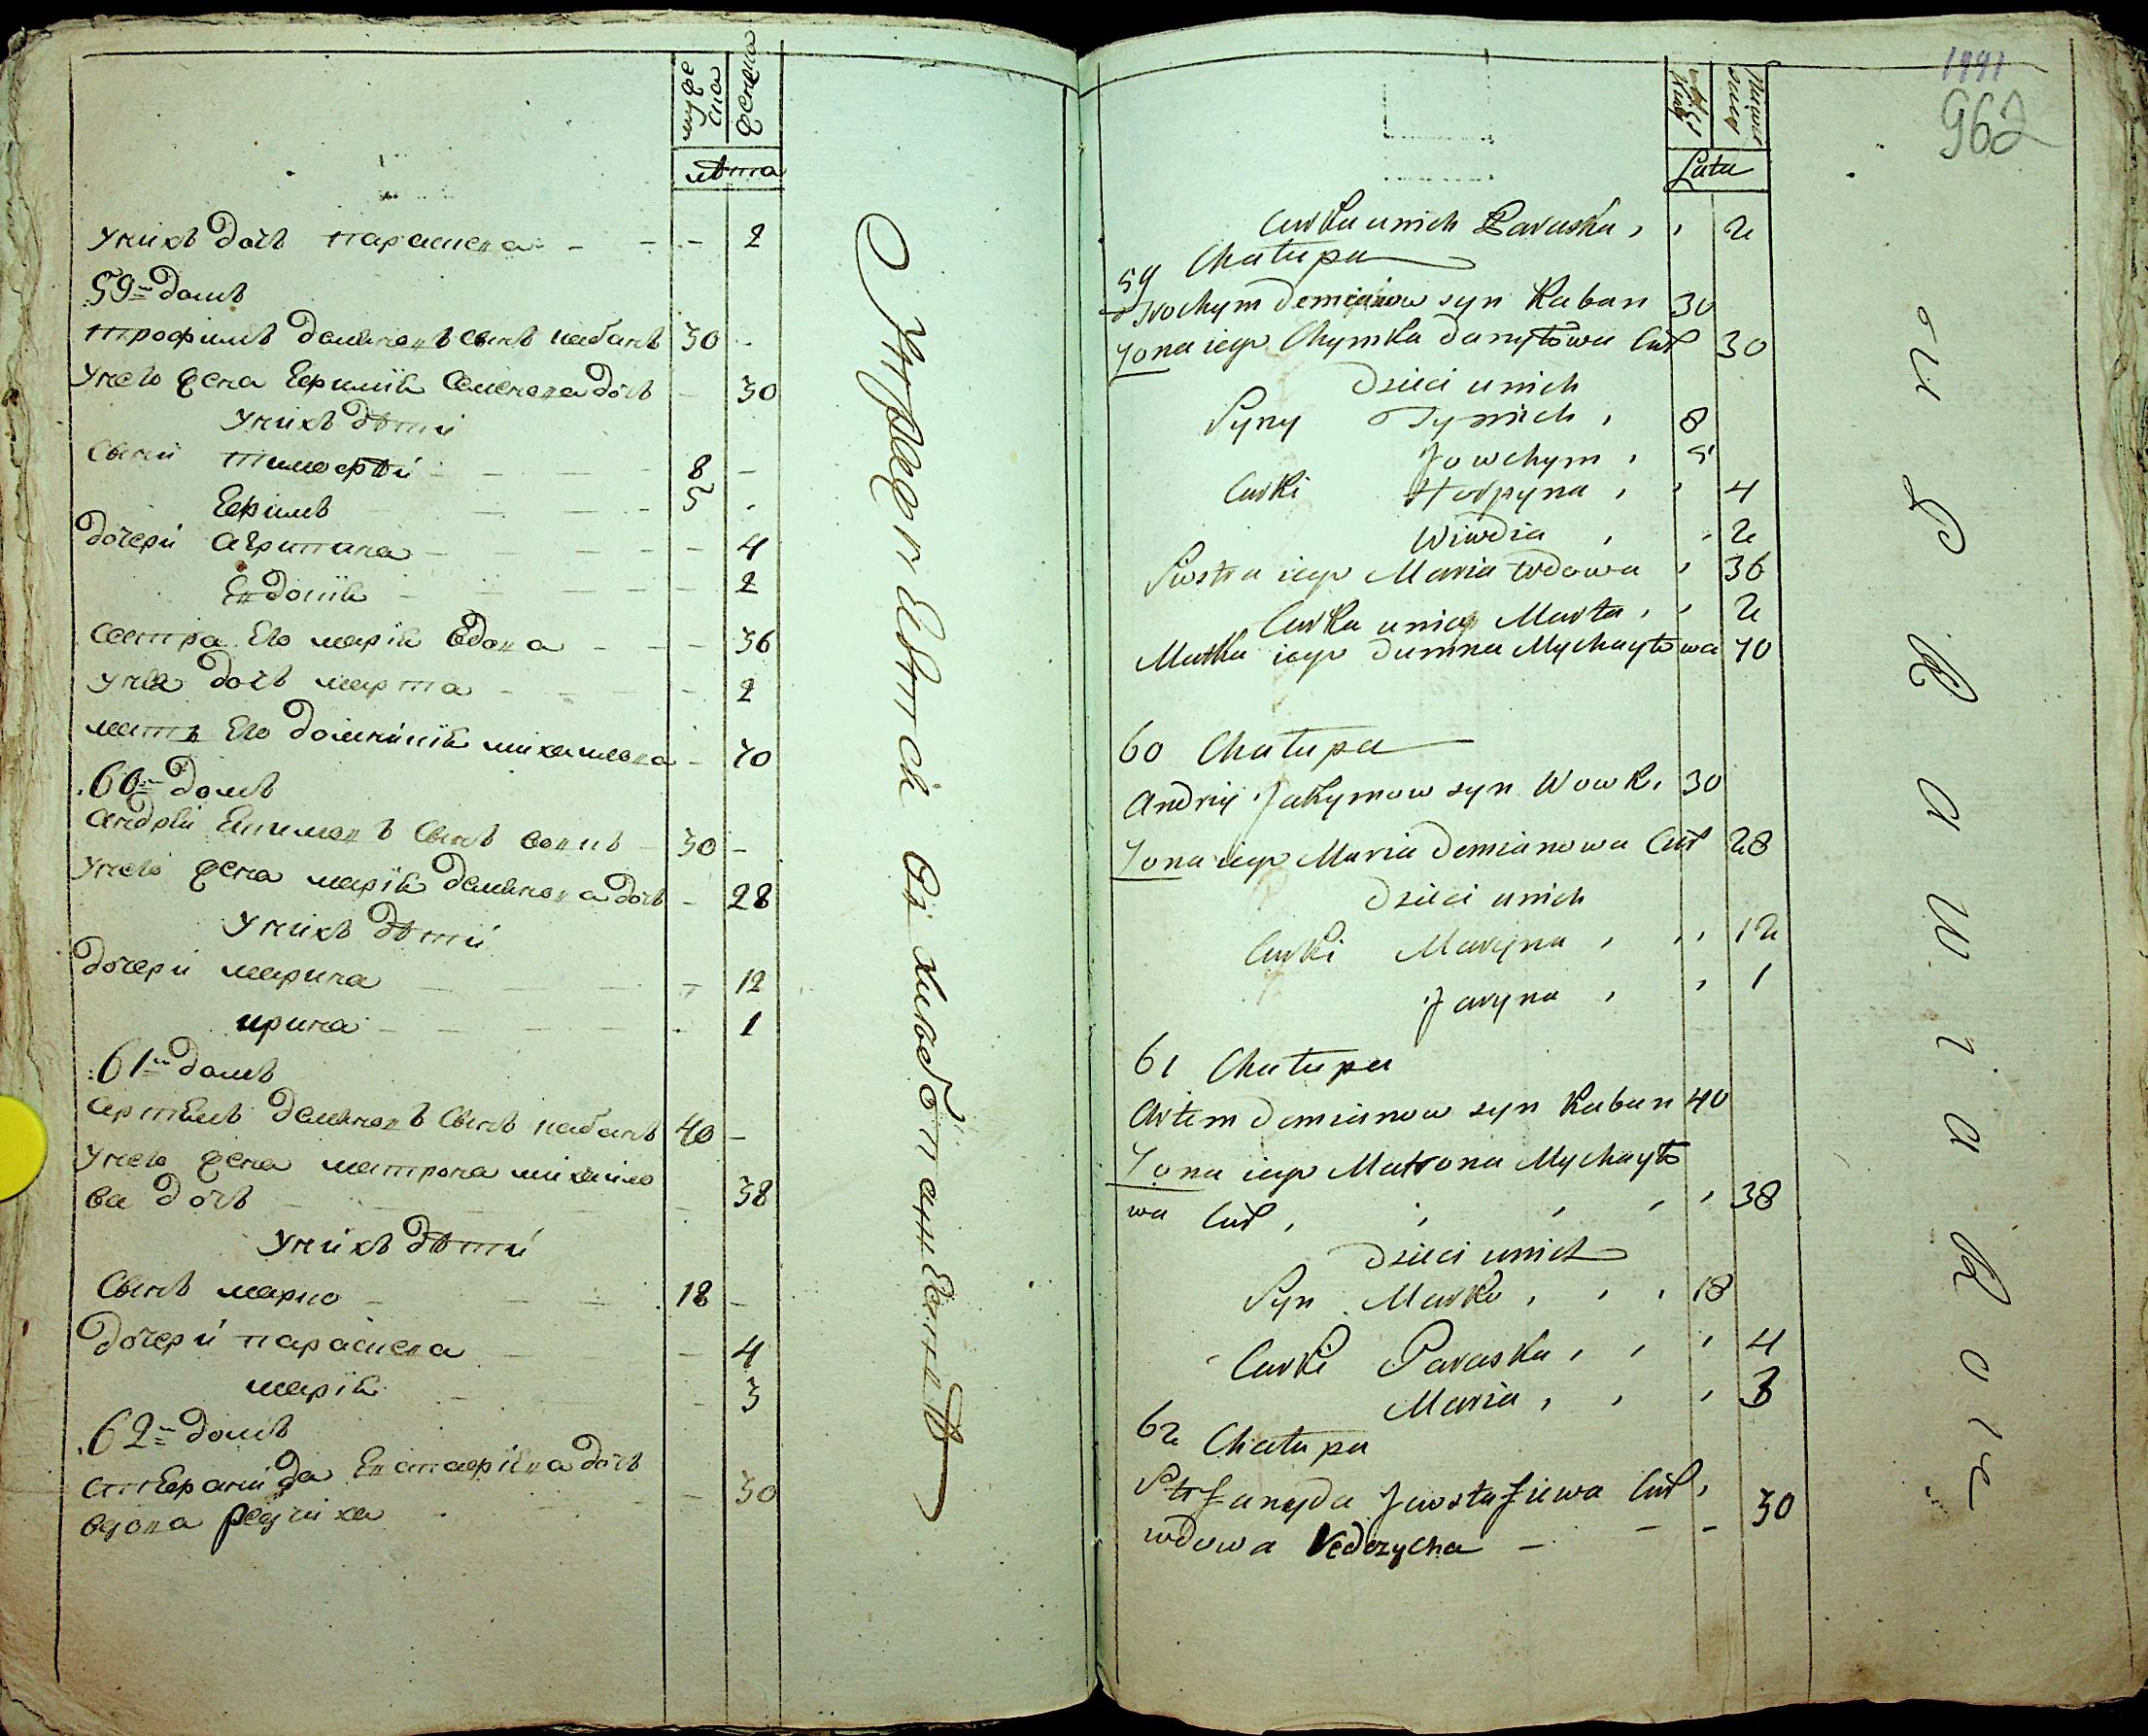 муже
ска
женска
лѣта
Унихъ дочь параскева - - - 2
59й домъ
трофимъ демяновъ сынъ кабанъ 30 -
Унего жена Евфимія Семенова дочь - 30
Унихъ дѣти
Сыни тимофѣй - - - 8 -
Ефимъ - - - 5 -
дочери агрипина - - - 4
Евдокія - - - 2
Сестра Его марія вдова - - - 36
Унея дочь марта - - - 2
мать Его домникія михаилова - 70
60й домъ
андрѣй Екимовъ сынъ вовкъ 30 -
Унего жена марія демянова дочь - 28
Унихъ дѣти
дочери марина - - - 12
ирина - - - 1
61й домъ
артемъ демяновъ сынъ кабанъ 40 -
Унего жена матрона михайло
ва дочь - - - 38
Унихъ дѣти
Сынъ марко - - - 18 -
дочери параскева - - - 4
марія - - - 3
62й домъ
стефанида Евстафіева дочь
вдова - - - 30
1991
962
Lata
Curka unich Paraska , , 2
59 Chałupa
Trochym Demianow syn Kaban 30
Żona iego Chymka Daniłowa Cur 30
Dzieci unich
Syny Tymich , 8
Jowchym , 5
Curki Horpyna , , 4
Wiwdia , , 2
Siostra iego Maria wdowa , 36
Curka uniey Marta , , 2
Matka iego Dumna Mychayłowa 70
60 Chałupa
Andriy Jakymow syn Wowk , 30
Żona iego Maria Demianowa Cur 28
Dzieci unich
Curki Maryna , , , 12
Jaryna , , 1
61 Chałupa
Artem Demianow syn Kaban 40
Żona iego Matrona Mychayło
wa Cur , , , , , 38
Dzieci unich
Syn Marko , , , 18
Curki Paraska , , , 4
Maria , , , 3
62 Chałupa
Stefanyda Jewstafiewa Cur ,
wdowa Vedrzycha - - - 30